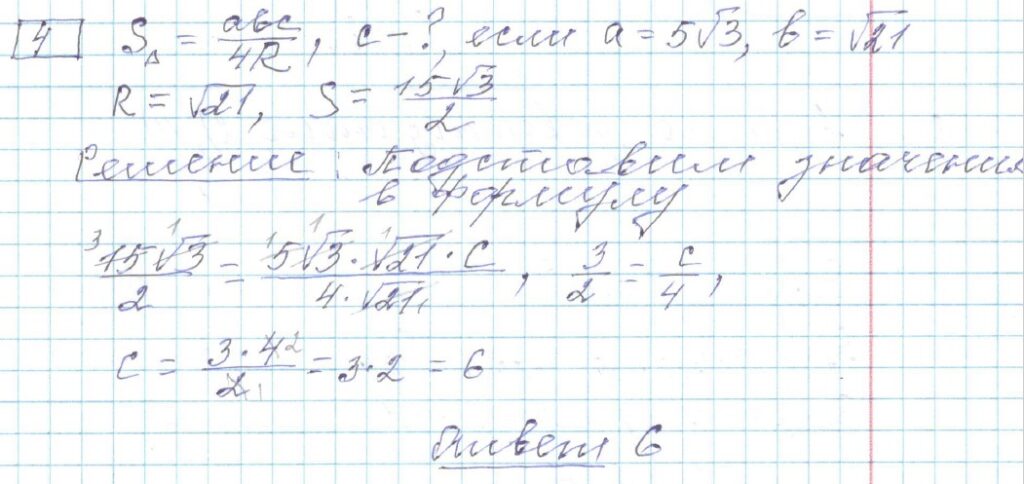 4 S△ = abc/4R, c - ?, если a = 5√3, b = √21
R = √21, S = 15√3/2
Решение: Подставим значения
в формулу
15√3/2 = 5√3·√21·c/4·√21, 3/2 = c/4,
c = 3·4/2 = 3·2 = 6
Ответ 6